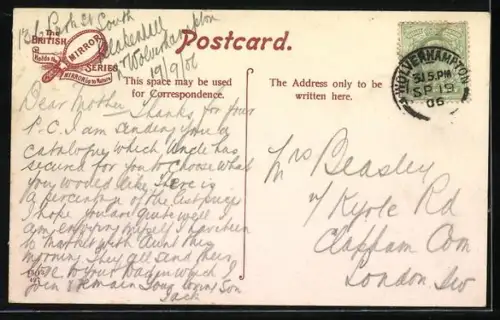 136 Park St South
Blakenhall
Wolverhampton
19/9/06
The
BRITISH
MIRROR
SERIES
Holds the
MIRROR up to Nature
Postcard.
This space may be used
for Correspondence.
The Address only to be
written here.
WOLVERHAMPTON
315.PM
SP 19
06
Dear Mother – Thanks for your
P.C. I am sending you a
catalogue which Uncle has
secured for you to choose what
you would like. There is
a percentage of the list prices
I hope you are quite well I
am enjoying myself I have been
to market with Aunt this
morning They all send their
love to you &  in which I
join I remain Your loving Son
Jack
Mrs Beasley
7 Kyrle Rd
Clapham Com
London SW